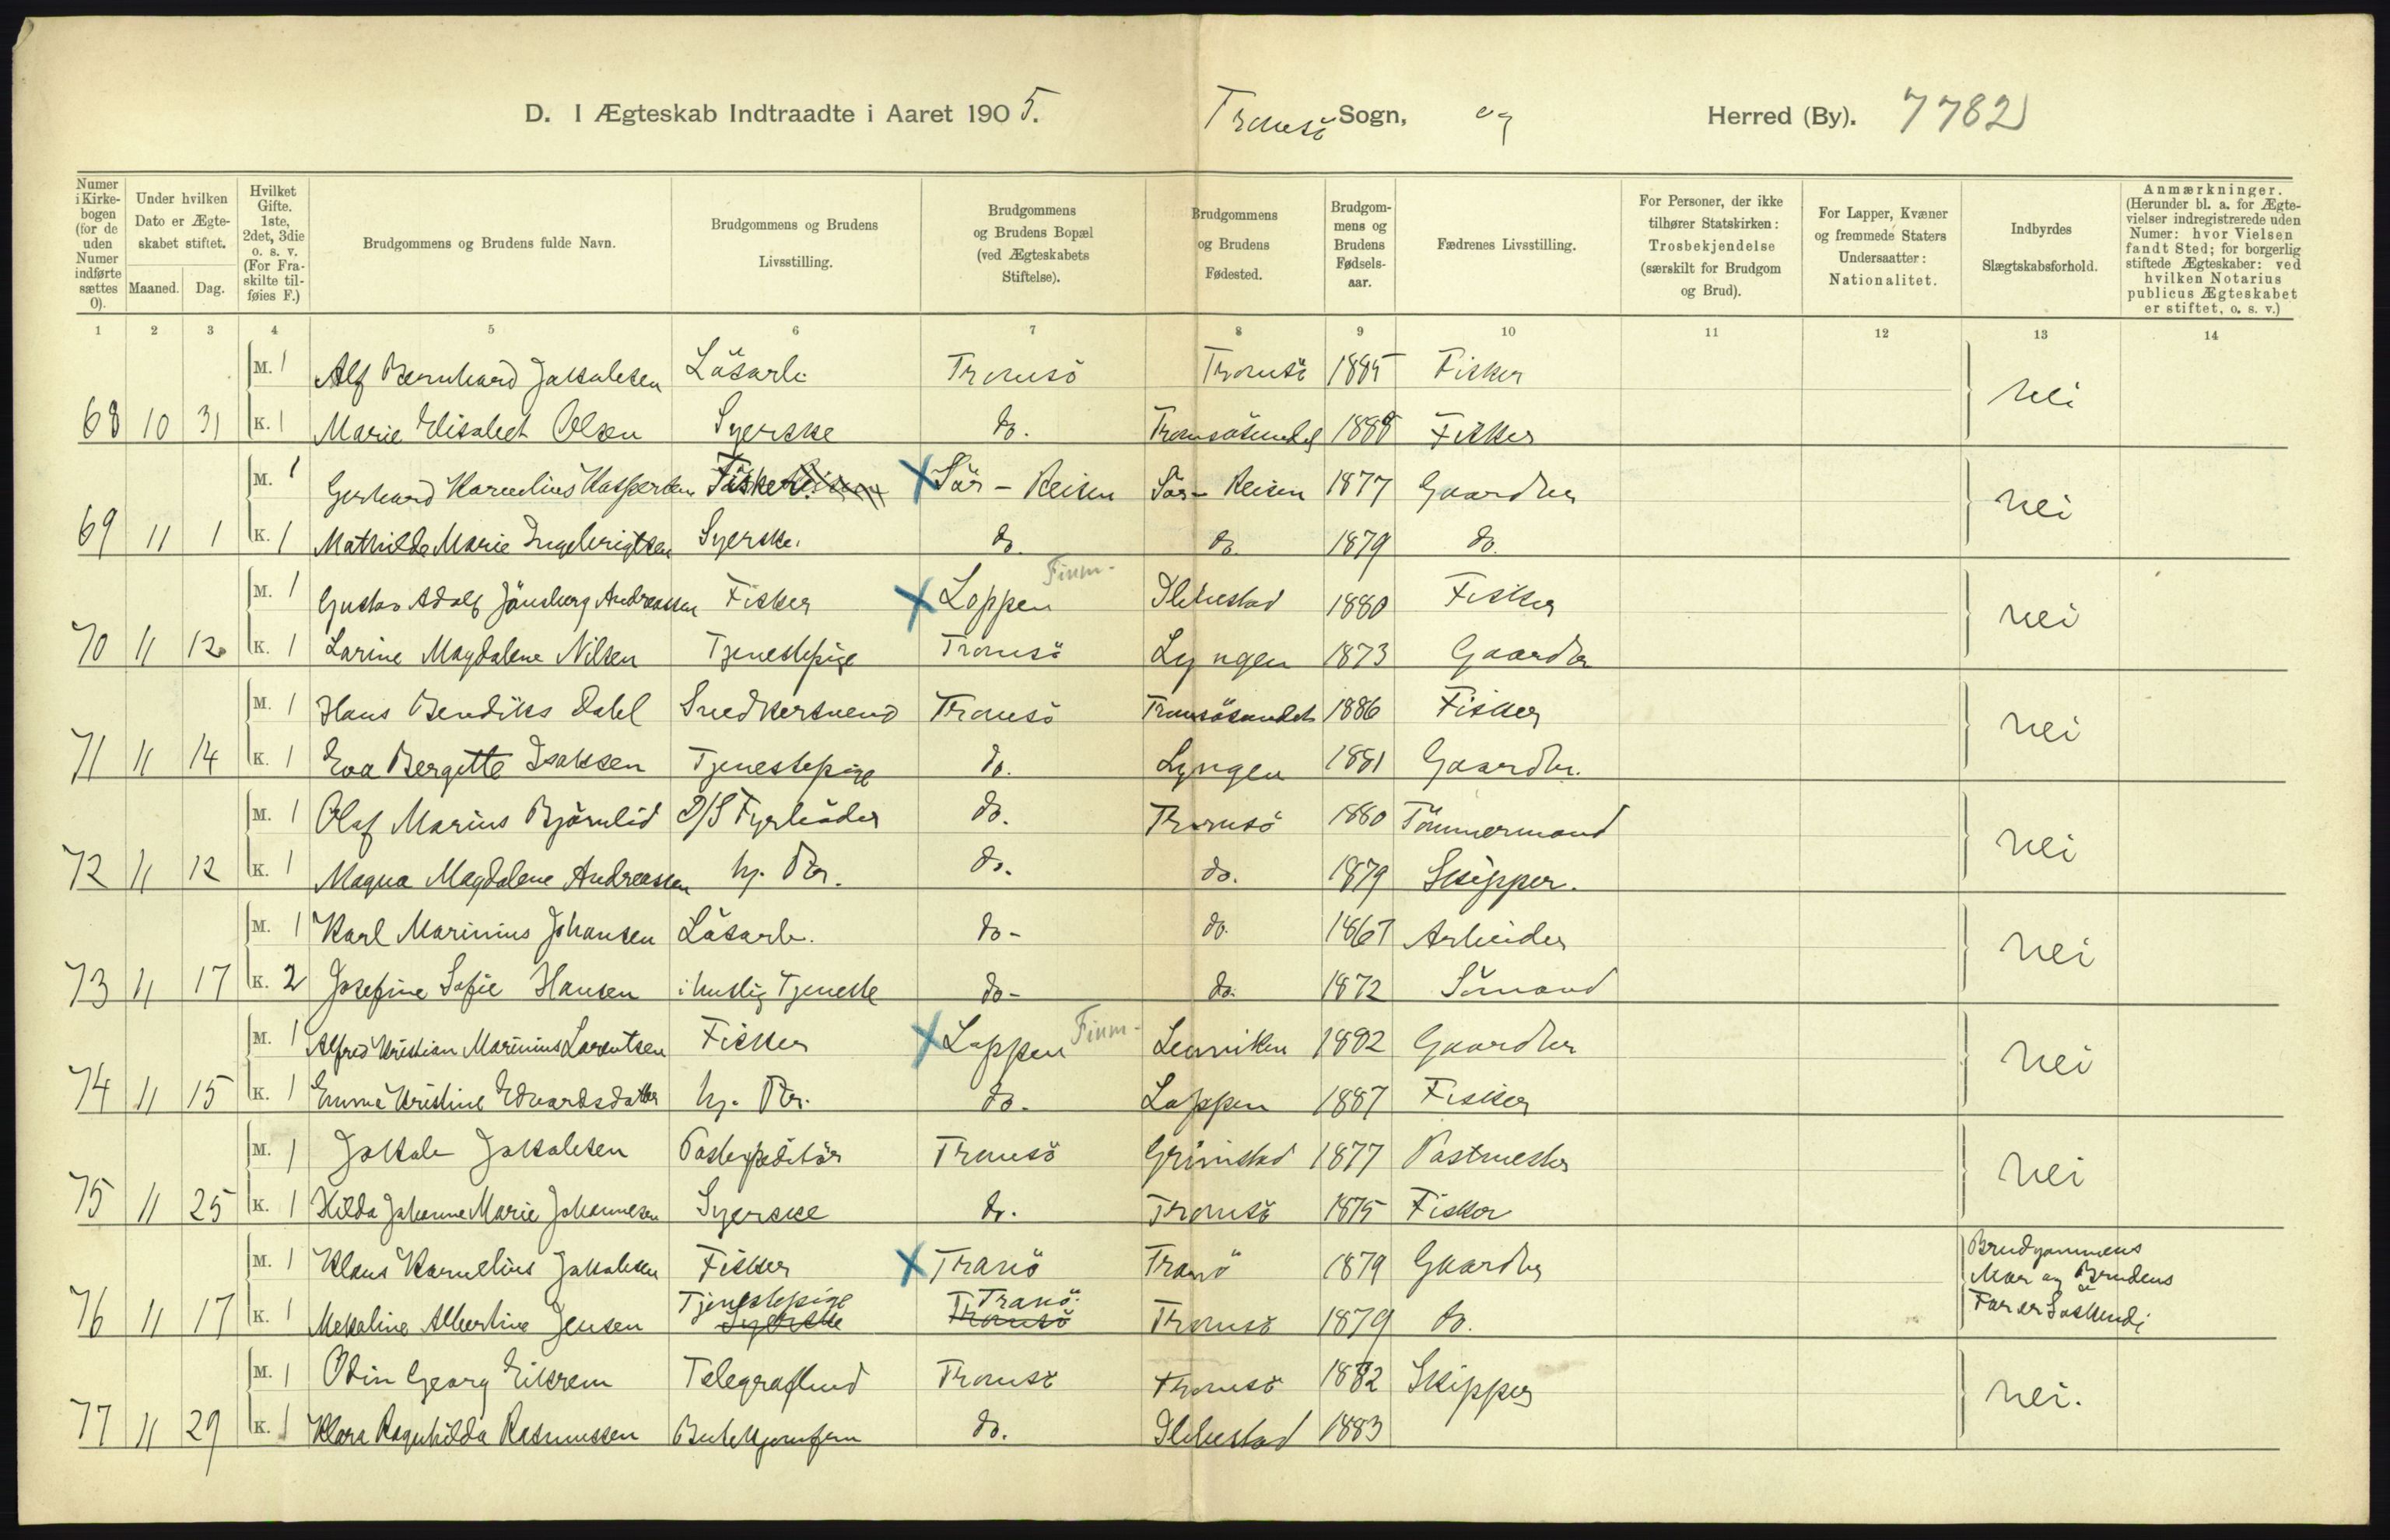 D. I Ægteskab Indtraadte i Aaret 1905. Tromsö Sogn, og Herred (By). 7782
Numer i Kirkebogen (for de uden Numer indførte sættes 0).
Under hvilken Dato er Ægteskabet stiftet.
Maaned. Dag.
Hvilket Gifte. 1ste, 2det, 3die o. s. v. (For Fraskilte tilføies F.)
Brudgommens og Brudens fulde Navn.
Brudgommens og Brudens Livsstilling.
Brudgommens og Brudens Bopæl (ved Ægteskabets Stiftelse).
Brudgommens og Brudens Fødested.
Brudgommens og Brudens Fødselsaar.
Fædrenes Livsstilling.
For Personer, der ikke tilhører Statskirken: Trosbekjendelse (særskilt for Brudgom og Brud).
For Lapper, Kvæner og fremmede Staters Undersaatter: Nationalitet.
Indbyrdes Slægtskabsforhold.
Anmærkninger. (Herunder bl. a. for Ægtevielser indregistrerede uden Numer: hvor Vielsen fandt Sted; for borgerlig stiftede Ægteskaber: ved hvilken Notarius publicus Ægteskabet er stiftet, o. s. v.)
1 2 3 4 5 6 7 8 9 10 11 12 13 14
M. 1 Alf Bernhard Jakobsen Lösarb. Tromsö Tromsö 1885 Fisker nei
68 10 31 K. 1 Marie Elisabet Olsen Syerske do. Tromsösundet 1888 Fisker
M. 1 Gerhard Kornelius Kaspersen Fisker X Sör-Reisen Sör-Reisen 1877 Gaardbr nei
69 11 1 K. 1 Mathilde Marie Ingebrigtsen Syerske. do. do. 1879 do.
M. 1 Gustav Adolf Jönsberg Andreassen Fisker X Loppen Finm- Ibbestad 1880 Fisker nei
70 11 12 K. 1 Larine Magdalene Nilsen Tjenestepige Tromsö Lyngen 1873 Gaardbr
M. 1 Hans Bendiks Dahl Snedkersvend Tromsö Tromsösundet 1886 Fisker nei
71 11 14 K. 1 Eva Bergitte Isaksen Tjenestepige do. Lyngen 1881 Gaardbr.
M. 1 Olaf Marius Björnlid D/S Fyrböder do. Tromsö 1880 Tömmermand nei
72 11 12 K. 1 Magna Magdalene Andreassen hj. do. do. 1879 Skipper.
M. 1 Karl Marinius Johansen Lösarb. do- do. 1867 Arbeider nei
73 11 17 K. 2 Josefine Sofie Hansen i huslig Tjeneste do- do. 1872 Sömand
M. 1 Alfred Kristian Marinius Lorentsen Fisker X Loppen Finm- Lenviken 1882 Gaardbr nei
74 11 15 K. 1 Emma Kristine Edvardsdatter hj. do- Loppen 1887 Fisker
M. 1 Jakob Jakobsen Postexpeditör Tromsö Grimstad 1877 Postmester nei
75 11 25 K. 1 Hilda Johanne Marie Johannesen Syerske do. Tromsö 1875 Fisker
M. 1 Klaus Kornelius Jakobsen Fisker X Tranö Tranö 1879 Gaardbr Brudgommens Mor og Brudens Far er Söskend;
76 11 17 K. 1 Mekaline Albertine Jensen Tjenestepige Syerske Tranö Tromsö Tromsö 1879 do.
M. 1 Odin Georg Eikrem Telegrafbud Tromsö Tromsö 1882 Skipper nei.
77 11 29 K. 1 Klara Ragnhilda Rasmussen Butikjomfru do. Ibbestad 1883